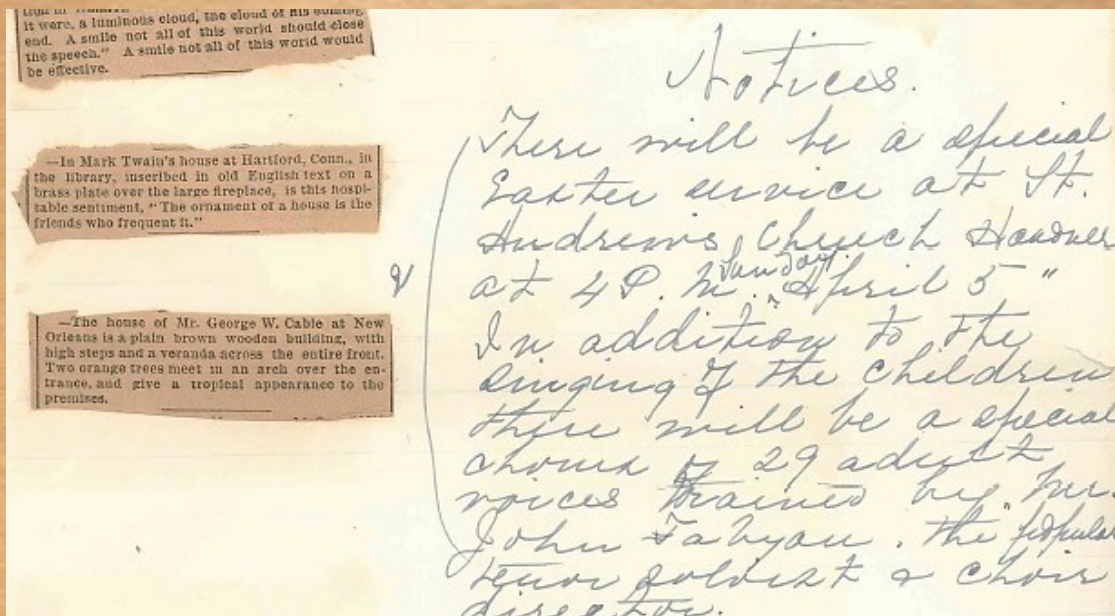 it were, a luminous cloud, the cloud of his coming
end. A smile not all of this world should close
the speech." A smile not all of this world would
be effective.
—In Mark Twain's house at Hartford, Conn., in
the library, inscribed in old English text on a
brass plate over the large fireplace, is this hospi-
table sentiment, "The ornament of a house is the
friends who frequent it."
—The house of Mr. George W. Cable at New
Orleans is a plain brown wooden building, with
high steps and a veranda across the entire front.
Two orange trees meet in an arch over the en-
trance, and give a tropical appearance to the
premises.
Notices.
There will be a special
Easter service at St.
Andrews Church
at 4 P. M. Sunday April 5"
In addition to the
singing of the children
there will be a special
chorus of 29 adult
voices trained by Mr.
John Fabyan. The popular
tenor soloist & choir
director.